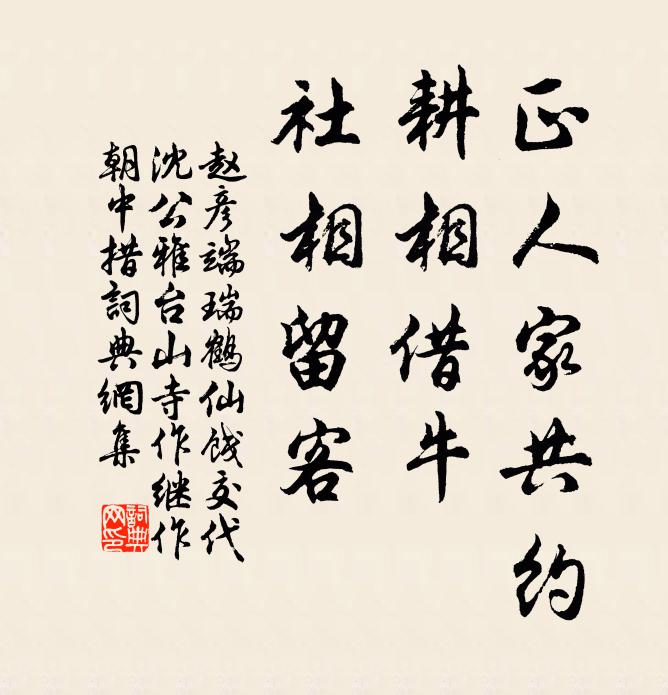 正人家共约
耕相借牛
社相留客
赵彦端瑞鹤仙饯交代
沈公雅台山寺作继作
朝中措詞典網集
詞典
网印